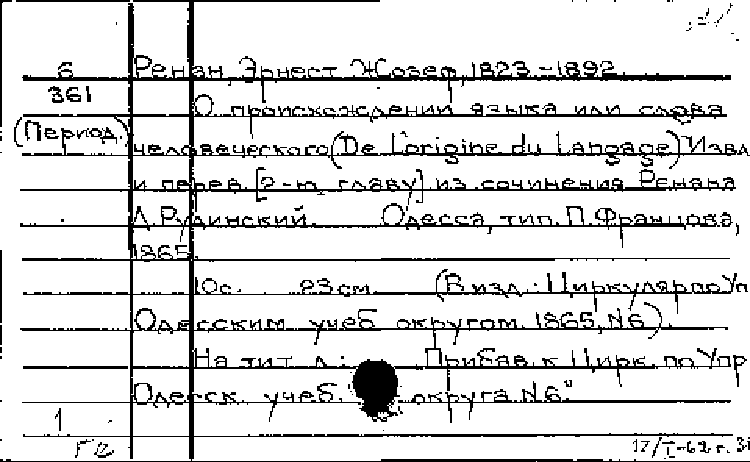 6
361
(Период.)
Ренан, Эрнест Жозеф, 1823-1892.
О происхождении языка или слова
человеческого (De l'origine du langage) Извл
и перев. [2-ю главу] из сочинения Ренана
Л. Рудинский. Одесса, тип. П. Францова,
1865.
10с. 23см. (В изд.: Циркуляр по Уп
Одесским учеб округом. 1865, №6).
На тит. л.: Прибав. к Цирк. по Упр
Одесск. учеб. округа №6."
1
17/I-62 г.